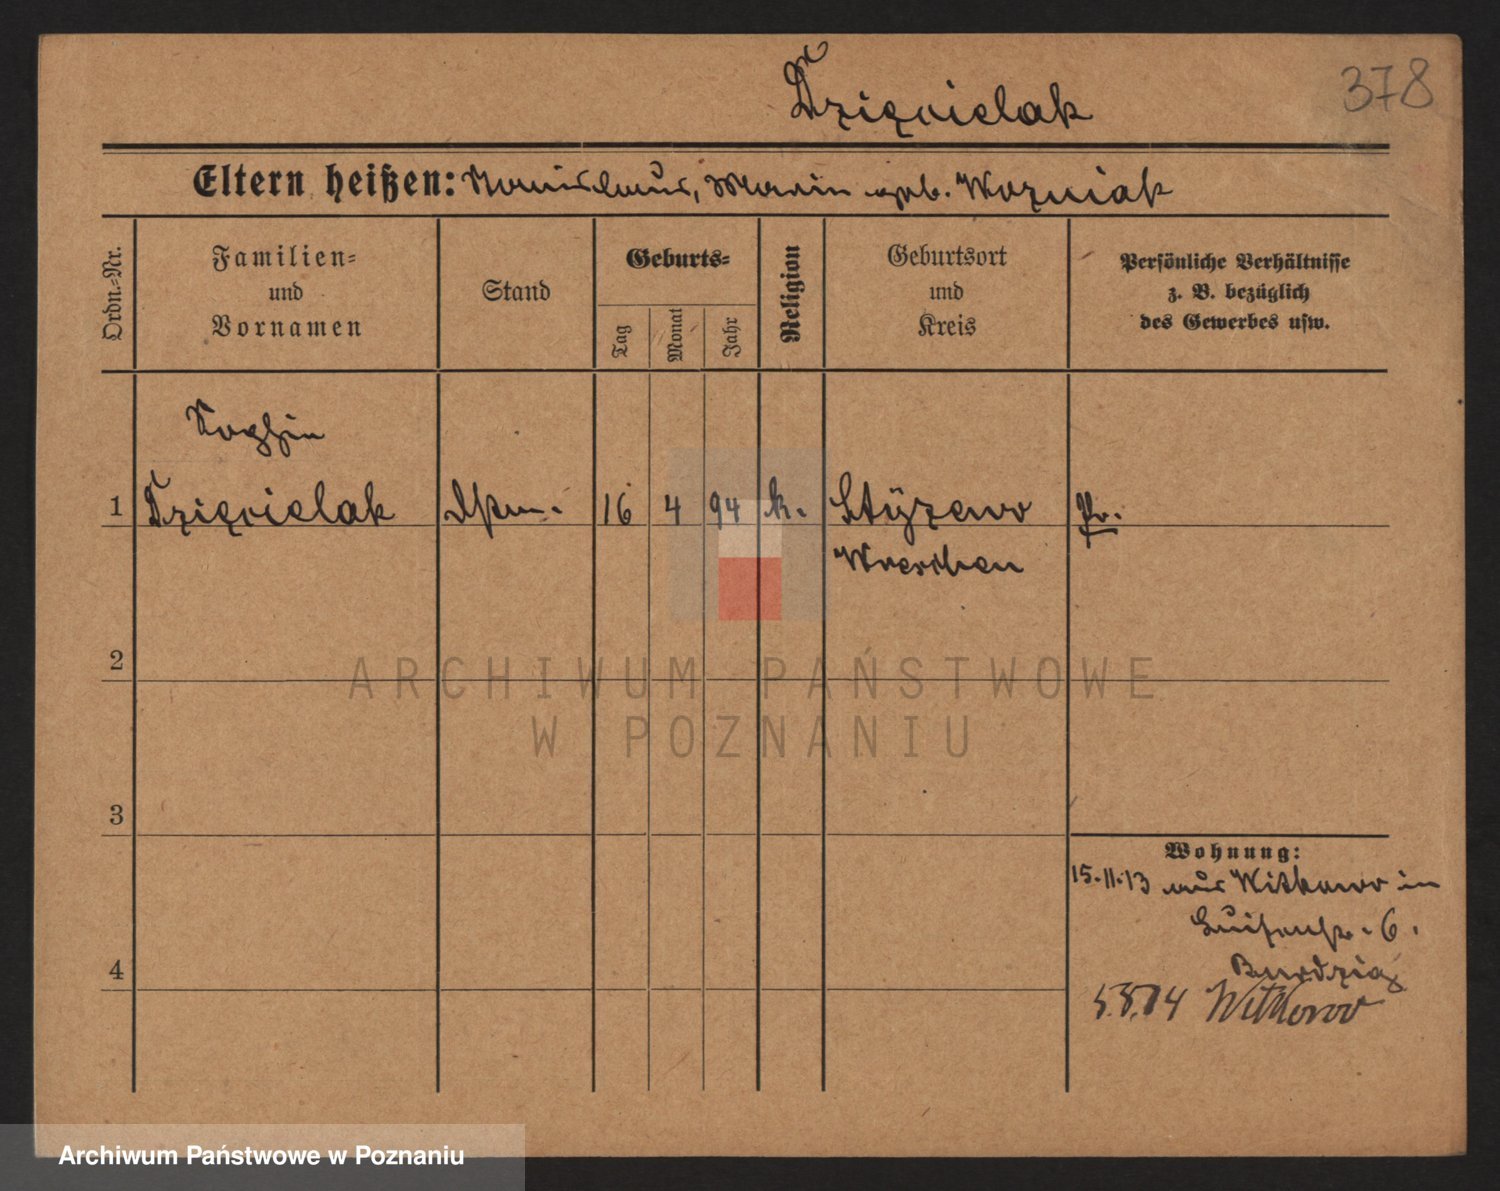 378
Dzięcielak
Eltern heißen: Stanislaus, Maria geb. Wozniak
Ordn.-Nr.
Familien-
und
Vornamen
Stand
Geburts-
Tag
Monat
Jahr
Religion
Geburtsort
und
Kreis
Persönliche Verhältnisse
z. B. bezüglich
des Gewerbes usw.
Sophie
1 Dzięcielak 16 4 94 k. Pr.
Wreschen
2
3
4
Wohnung:
15.11.13 aus Witkowo in
Luisenstr. 6.
5.8.14 Witkowo
ARCHIWUM PAŃSTWOWE
W POZNANIU
Archiwum Państwowe w Poznaniu